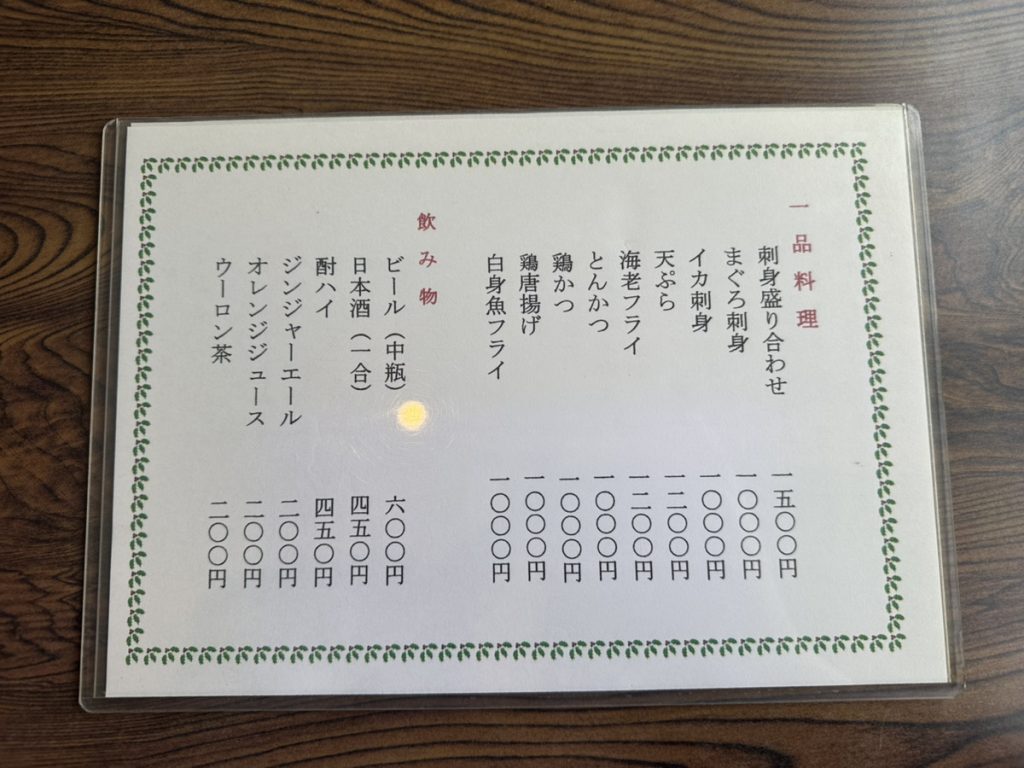 一品料理
刺身盛り合わせ 一五〇〇円
まぐろ刺身 一〇〇〇円
イカ刺身 一〇〇〇円
天ぷら 一二〇〇円
海老フライ 一二〇〇円
とんかつ 一〇〇〇円
鶏かつ 一〇〇〇円
鶏唐揚げ 一〇〇〇円
白身魚フライ 一〇〇〇円
飲み物
ビール（中瓶） 六〇〇円
日本酒（一合） 四五〇円
酎ハイ 四五〇円
ジンジャーエール 二〇〇円
オレンジジュース 二〇〇円
ウーロン茶 二〇〇円